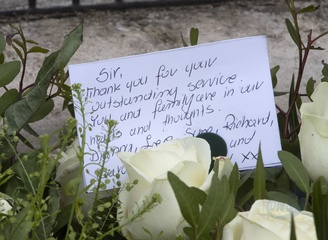 Sir,
Thank you for your
outstanding service.
You and family are in our
and thoughts.
Richard,
and
xx